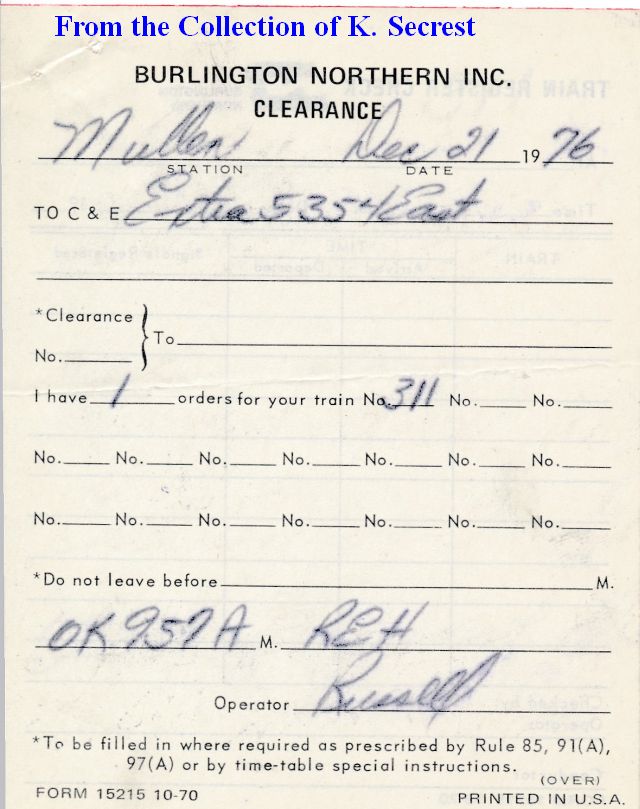 From the Collection of K. Secrest
BURLINGTON NORTHERN INC.
CLEARANCE
Mullen Dec 21 1976
STATION DATE
TO C & E Extra 5354 East
*Clearance
To
No.
I have 1 orders for your train No. 311 No. No.
No. No. No. No. No. No. No.
No. No. No. No. No. No. No.
*Do not leave before M.
OK 957 A M. REH
Operator Russell
*To be filled in where required as prescribed by Rule 85, 91(A),
97(A) or by time-table special instructions.
(OVER)
FORM 15215 10-70 PRINTED IN U.S.A.